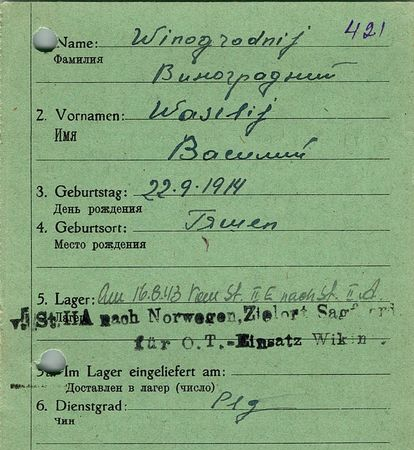 421
Name: Winogradnij
Фамилия
Виноградний
2. Vornamen: Wasilij
Имя
Василий
3. Geburtstag: 22.9.1914
День рождения
4. Geburtsort:
Место рождения
5. Lager: Am 16.8.43 vom St. II E nach St. II A.
Лагерь
v. St. II A nach Norwegen, Zielort
für O.T.-Einsatz
Im Lager eingeliefert am:
Доставлен в лагерь (число)
6. Dienstgrad:
Чин